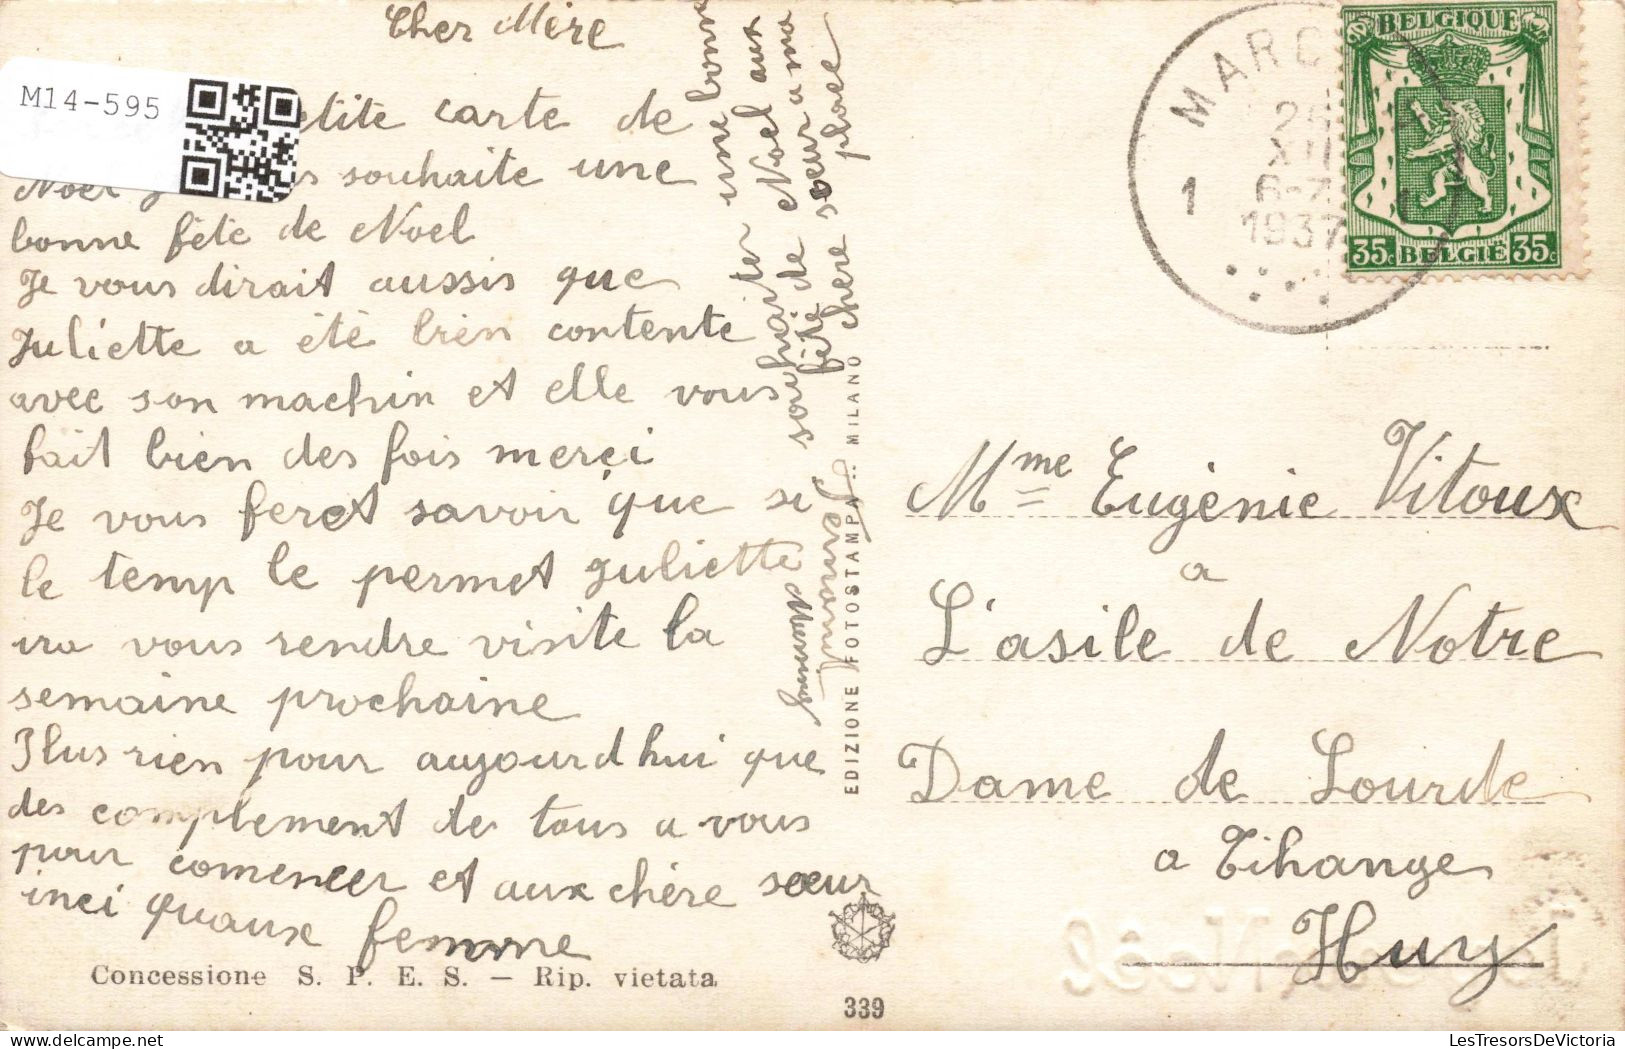 Cher Mère
M14-595
carte de
Noel souhaite une
bonne fête de Noel
Je vous dirait aussis que
Juliette a été bien contente
avec son machin et elle vous
fait bien des fois merçi
Je vous feret savoir que si
le temp le permet Juliette
ira vous rendre visite la
semaine prochaine
Plus rien pour aujourd hui que
des complement de tous a vous
pour comencer et aux chère sœur
inci quaux femme
une bonne
souhaiter
fête de Noel aux
de sœur a ma
chère sœur place
Concessione S. P. E. S. — Rip. vietata
EDIZIONE FOTOSTAMPA .. MILANO
339
MARC
1
XII
6-7
1937
BELGIQUE
35c BELGIË 35c
Mme Eugènie Vitoux
a
L'asile de Notre
Dame de Lourde
a Tihange
Huy
LesTresorsDeVictoria.com